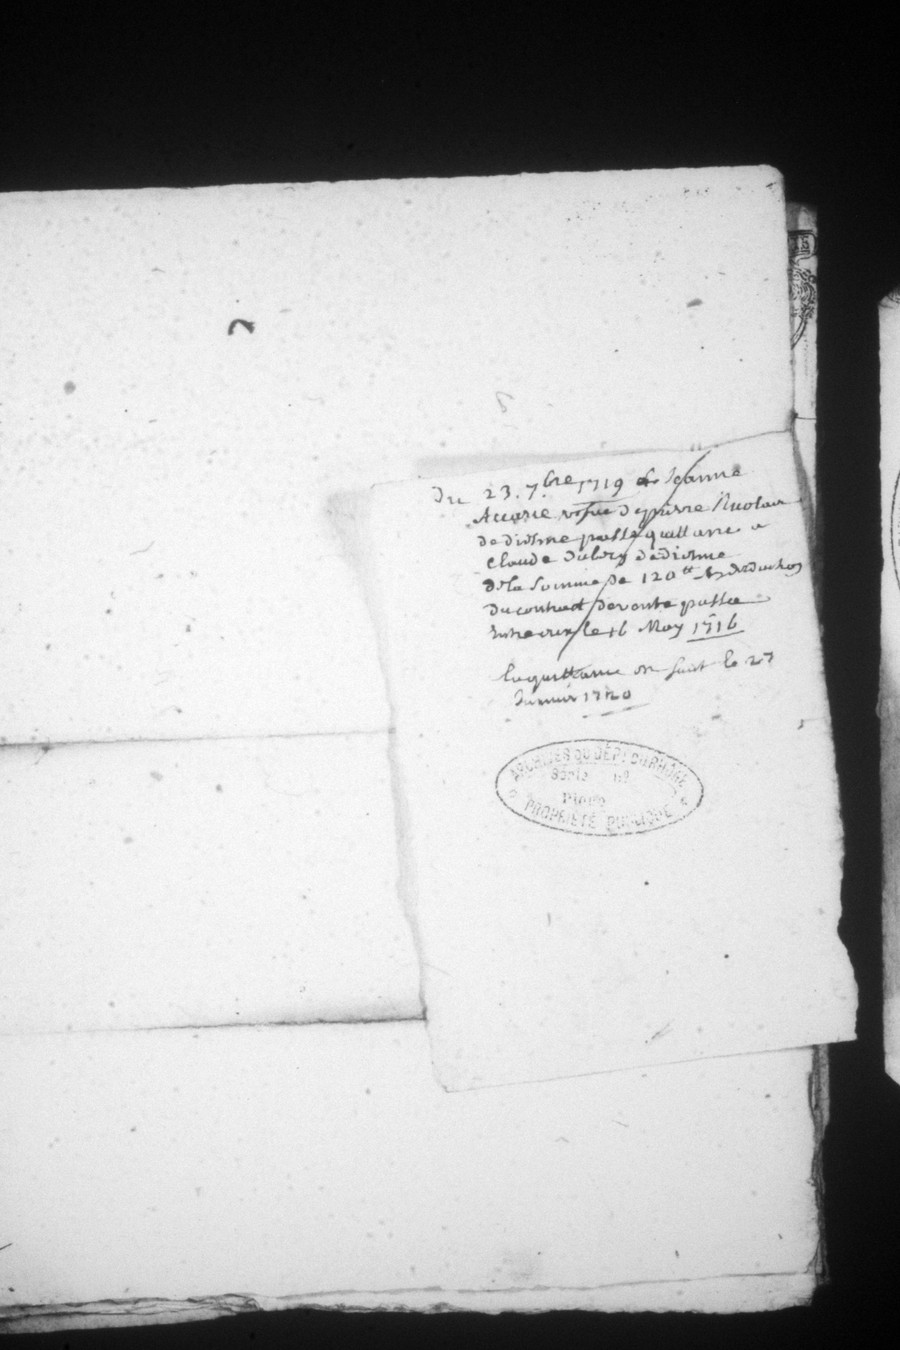 Du 23. 7bre 1719 Jeanne
Accarie vefue de pierre Nicolas
de diesme passe quittance a
Claude dediesme
de la Somme de 120tt
du contract de vente passée
Entre eux le 16 May 1716
la quittance En fait le 27
Januier 1720
ARCHIVES DU DÉPT DU RHÔNE
Série No
Pièce
PROPRIÉTÉ PUBLIQUE